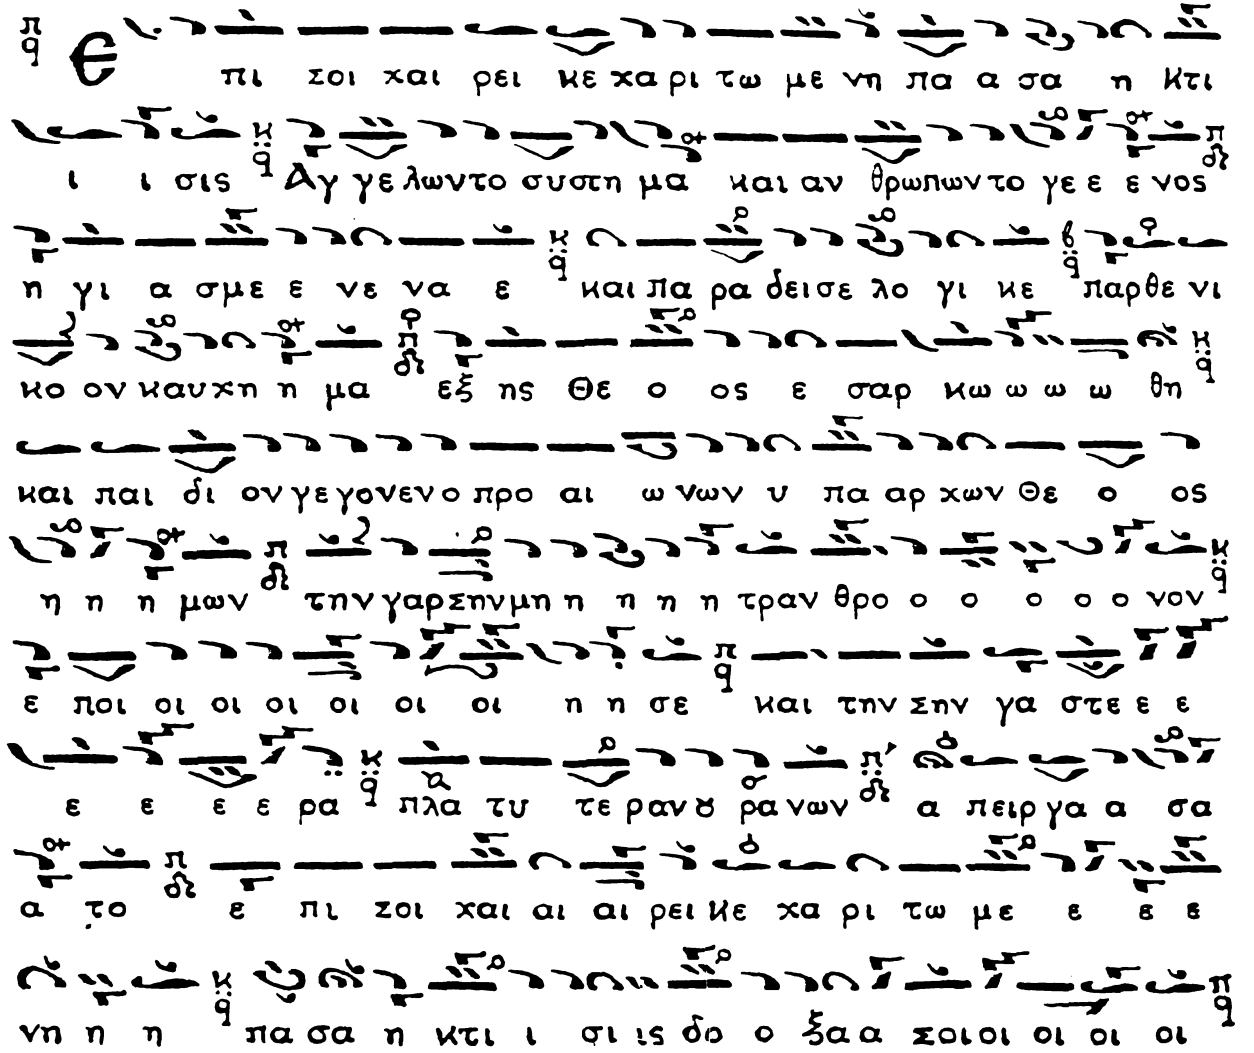 Ε πι σοι χαι ρει κε χα ρι τω με νη πα α σα η κτι
ι ι σις Αγ γε λων το συστη μα και αν θρωπων το γε ε ε νος
η γι α σμε ε νε να ε και πα ρα δεισε λο γι κε παρθε νι
κο ον καυχη η μα εξ ης Θε ο ος ε σαρ κω ω ω ω θη
και παι δι ον γε γονεν ο προ αι ω νων υ πα αρ χων Θε ο ος
η η η μων την γαρ σην μη η η η η τραν θρο ο ο ο ο ο νον
ε ποι οι οι οι οι οι οι η η σε και την σην γα στε ε ε
ε ε ε ε ρα πλα τυ τε ραν ȣ ρα νων α πειρ γα α σα
α το ε πι σοι χαι αι αι ρει κε χα ρι τω με ε ε ε
νη η η πα σα η κτι ι σι ις δο ο ξα α σοι οι οι οι οι